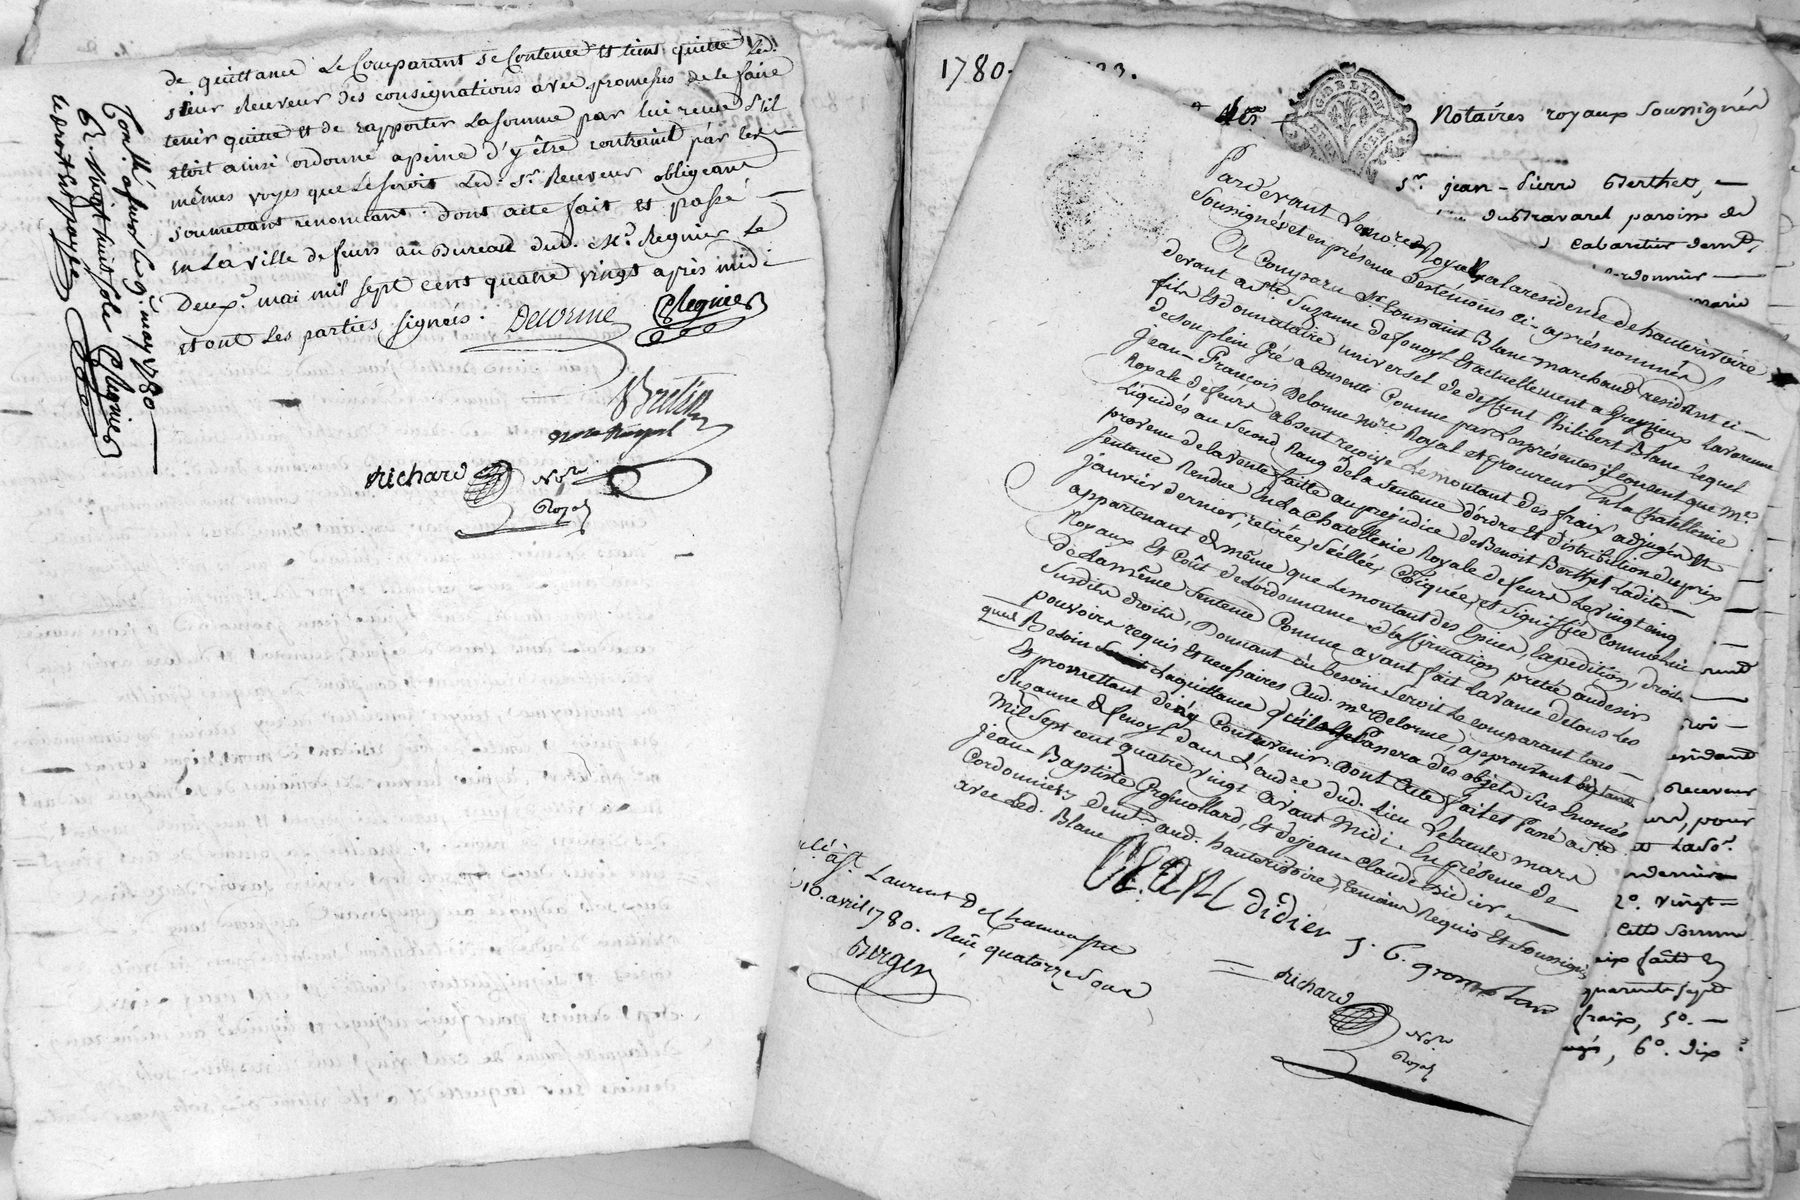 de quittance Le Comparant se Contente et tient quitte Led.
sieur Receveur des consignations avec promesses de le faire
tenir quitte et de rapporter La somme par lui recue s'il
étoit ainsi ordonné apeine d'y être contraint par les
mêmes voyes que Le seroit Led. Sr. Receveur obligeant
soumettant renoncant. dont acte fait et passé
en La ville de feurs au Bureau dud. Mr. Regnier Le
Deux mai mil sept cens quatre vingt après midi
et ont Les parties signées.
Delorme
CRegnier
Bretin
notre Royal
Richard
Nore
Royal
Contllé à feurs Le 9 may 1780
R. vingt huit sols CRegnier
1780.
GNÉ. LYON
Notaires royaux Soussignés
Sr. jean-Pierre Berthet,
Dutravarel paroisse de
cabaretier demt.
Cordonnier
Pardevant Le notre Royal à la residence de hauterivoire
Soussigné et en présence des témoins ci-après nommés
A Comparu Sr. Toussaint Blanc marchand residant ci-
devant a Ste. Suzanne defenoyl et actuellement a Grezieux Lavarenne
fils Et donnataire universel de deffunt Philibert Blanc Lequel
de son plein Gré a Consenti Comme par Les présentes il consent que Me.
Jean-François Delorme nore Royal et procureur En La Chatellenie
Royale de feurs absent reçoive Le montant des fraix adjugés et
Liquidés au Second Rang de la Sentence d'ordre et distribution du prix
provenu de la vente faitte au prejudice de Benoit Berthet Ladite
sentence Rendue En La Chatellenie Royale de feurs Le vingt cinq
janvier dernier, retirée, Scellée, Coipiée, et signiffiée comme lui
appartenant de même que Le montant des Epices, Expedition, droits
Royaux Et Coût de L'ordonnance d'affirmation pretée audesir
de La même sentence Comme ayant fait L'avance de tous Les
Susdits droits, Donnant où besoin Seroit Le comparant tous
pouvoirs requis et necessaires aud. me Delorme, approuvant
Besoin La quittance qu'il Passera des objets sus Enoncés
Et promettant de n'y Contrevenir Dont Acte fait et Passé a Ste.
Suzanne defenoyl dans L'audce dud. Lieu Le trente mars
Mil Sept cent quatre vingt avant Midi. En présence de
Jean-Baptiste Gromollard, Et de jean-Claude Didier
Cordonniers demt. aud. hauterivoire, témoins Requis Et Soussignés
avec Led. Blanc
BLANC
didier
J. B. gromolard
Richard
Nore
Royal
à St. Laurent De Chamousset
10. avril 1780. Reçu quatorze sous
Berger
résidant
Receveur
pour
et La So.
2o. vingt
cette somme
quarante sept
fraix, 5o.
6o. dix